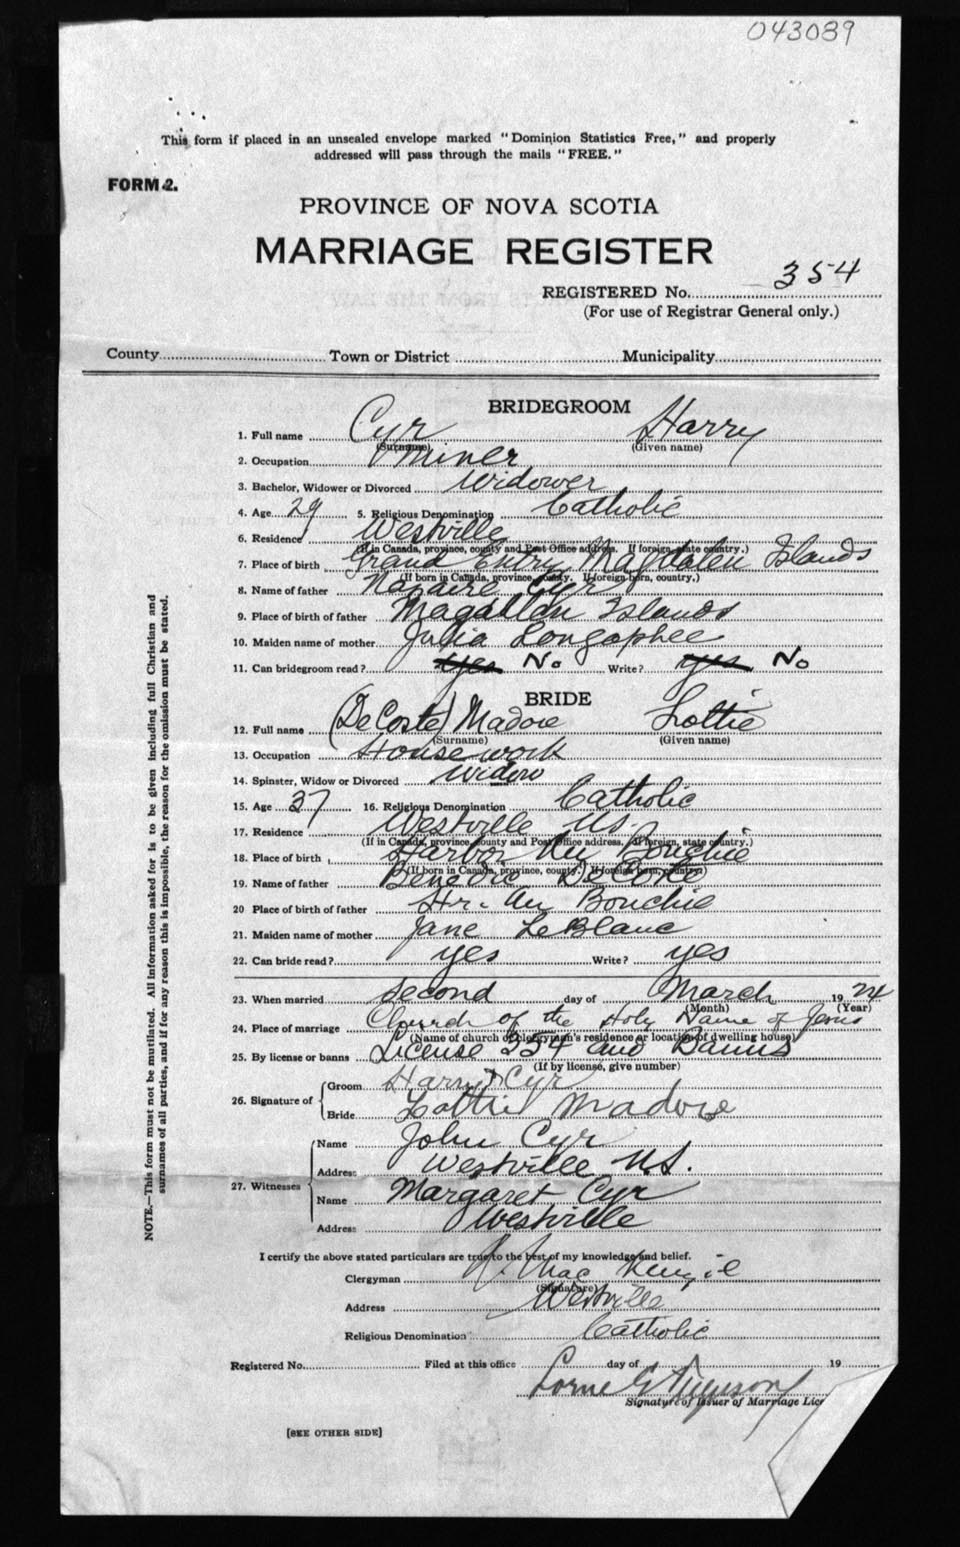 043089
This form if placed in an unsealed envelope marked "Dominion Statistics Free," and properly
addressed will pass through the mails "FREE."
FORM 2.
PROVINCE OF NOVA SCOTIA
MARRIAGE REGISTER
REGISTERED No. 354
(For use of Registrar General only.)
County Town or District Municipality
BRIDEGROOM
1. Full name Cyr Harry
(Surname) (Given name)
2. Occupation Miner
3. Bachelor, Widower or Divorced Widower
4. Age 29 5. Religious Denomination Catholic
6. Residence Westville
(If in Canada, province, county and Post Office address. If foreign, state country.)
7. Place of birth Grand Entry Magdalen Islands
(If born in Canada, province, county. If foreign born, country.)
8. Name of father Nazaire Cyr
9. Place of birth of father Magdalan Islands
10. Maiden name of mother Julia Longaphee
11. Can bridegroom read? yes No Write? yes No
BRIDE
12. Full name (DeCoste) Madore Lottie
(Surname) (Given name)
13. Occupation House work
14. Spinster, Widow or Divorced Widow
15. Age 37 16. Religious Denomination Catholic
17. Residence Westville N.S.
(If in Canada, province, county and Post Office address. If foreign, state country.)
18. Place of birth Harbor Au Bouchie
(If born in Canada, province, county. If foreign born, country)
19. Name of father DeCoste
20 Place of birth of father Hr. Au Bouchie
21. Maiden name of mother Jane LeBlanc
22. Can bride read? yes Write? yes
23. When married Second day of March 1924
(Month) (Year)
24. Place of marriage Church of the Holy Name of Jesus
(Name of church or clergyman's residence or location of dwelling house)
25. By license or banns License 354 and Banns
(If by license, give number)
26. Signature of Groom Harry X Cyr
Bride Lottie Madore
27. Witnesses
Name John Cyr
Address Westville N.S.
Name Margaret Cyr
Address Westville
I certify the above stated particulars are true to the best of my knowledge and belief.
Clergyman MacKenzie
(Signature)
Address Westville
Religious Denomination Catholic
Registered No. Filed at this office day of 19
Lorne G
Signature of Issuer of Marriage Lic
[SEE OTHER SIDE]
NOTE.—This form must not be mutilated. All information asked for is to be given including full Christian and
surnames of all parties, and if for any reason this is impossible, the reason for the omission must be stated.